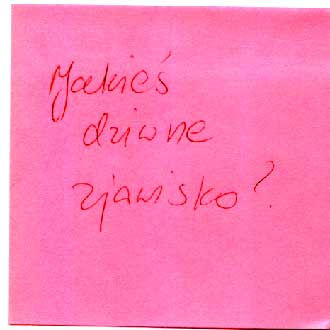 Jakieś
dziwne
zjawisko?